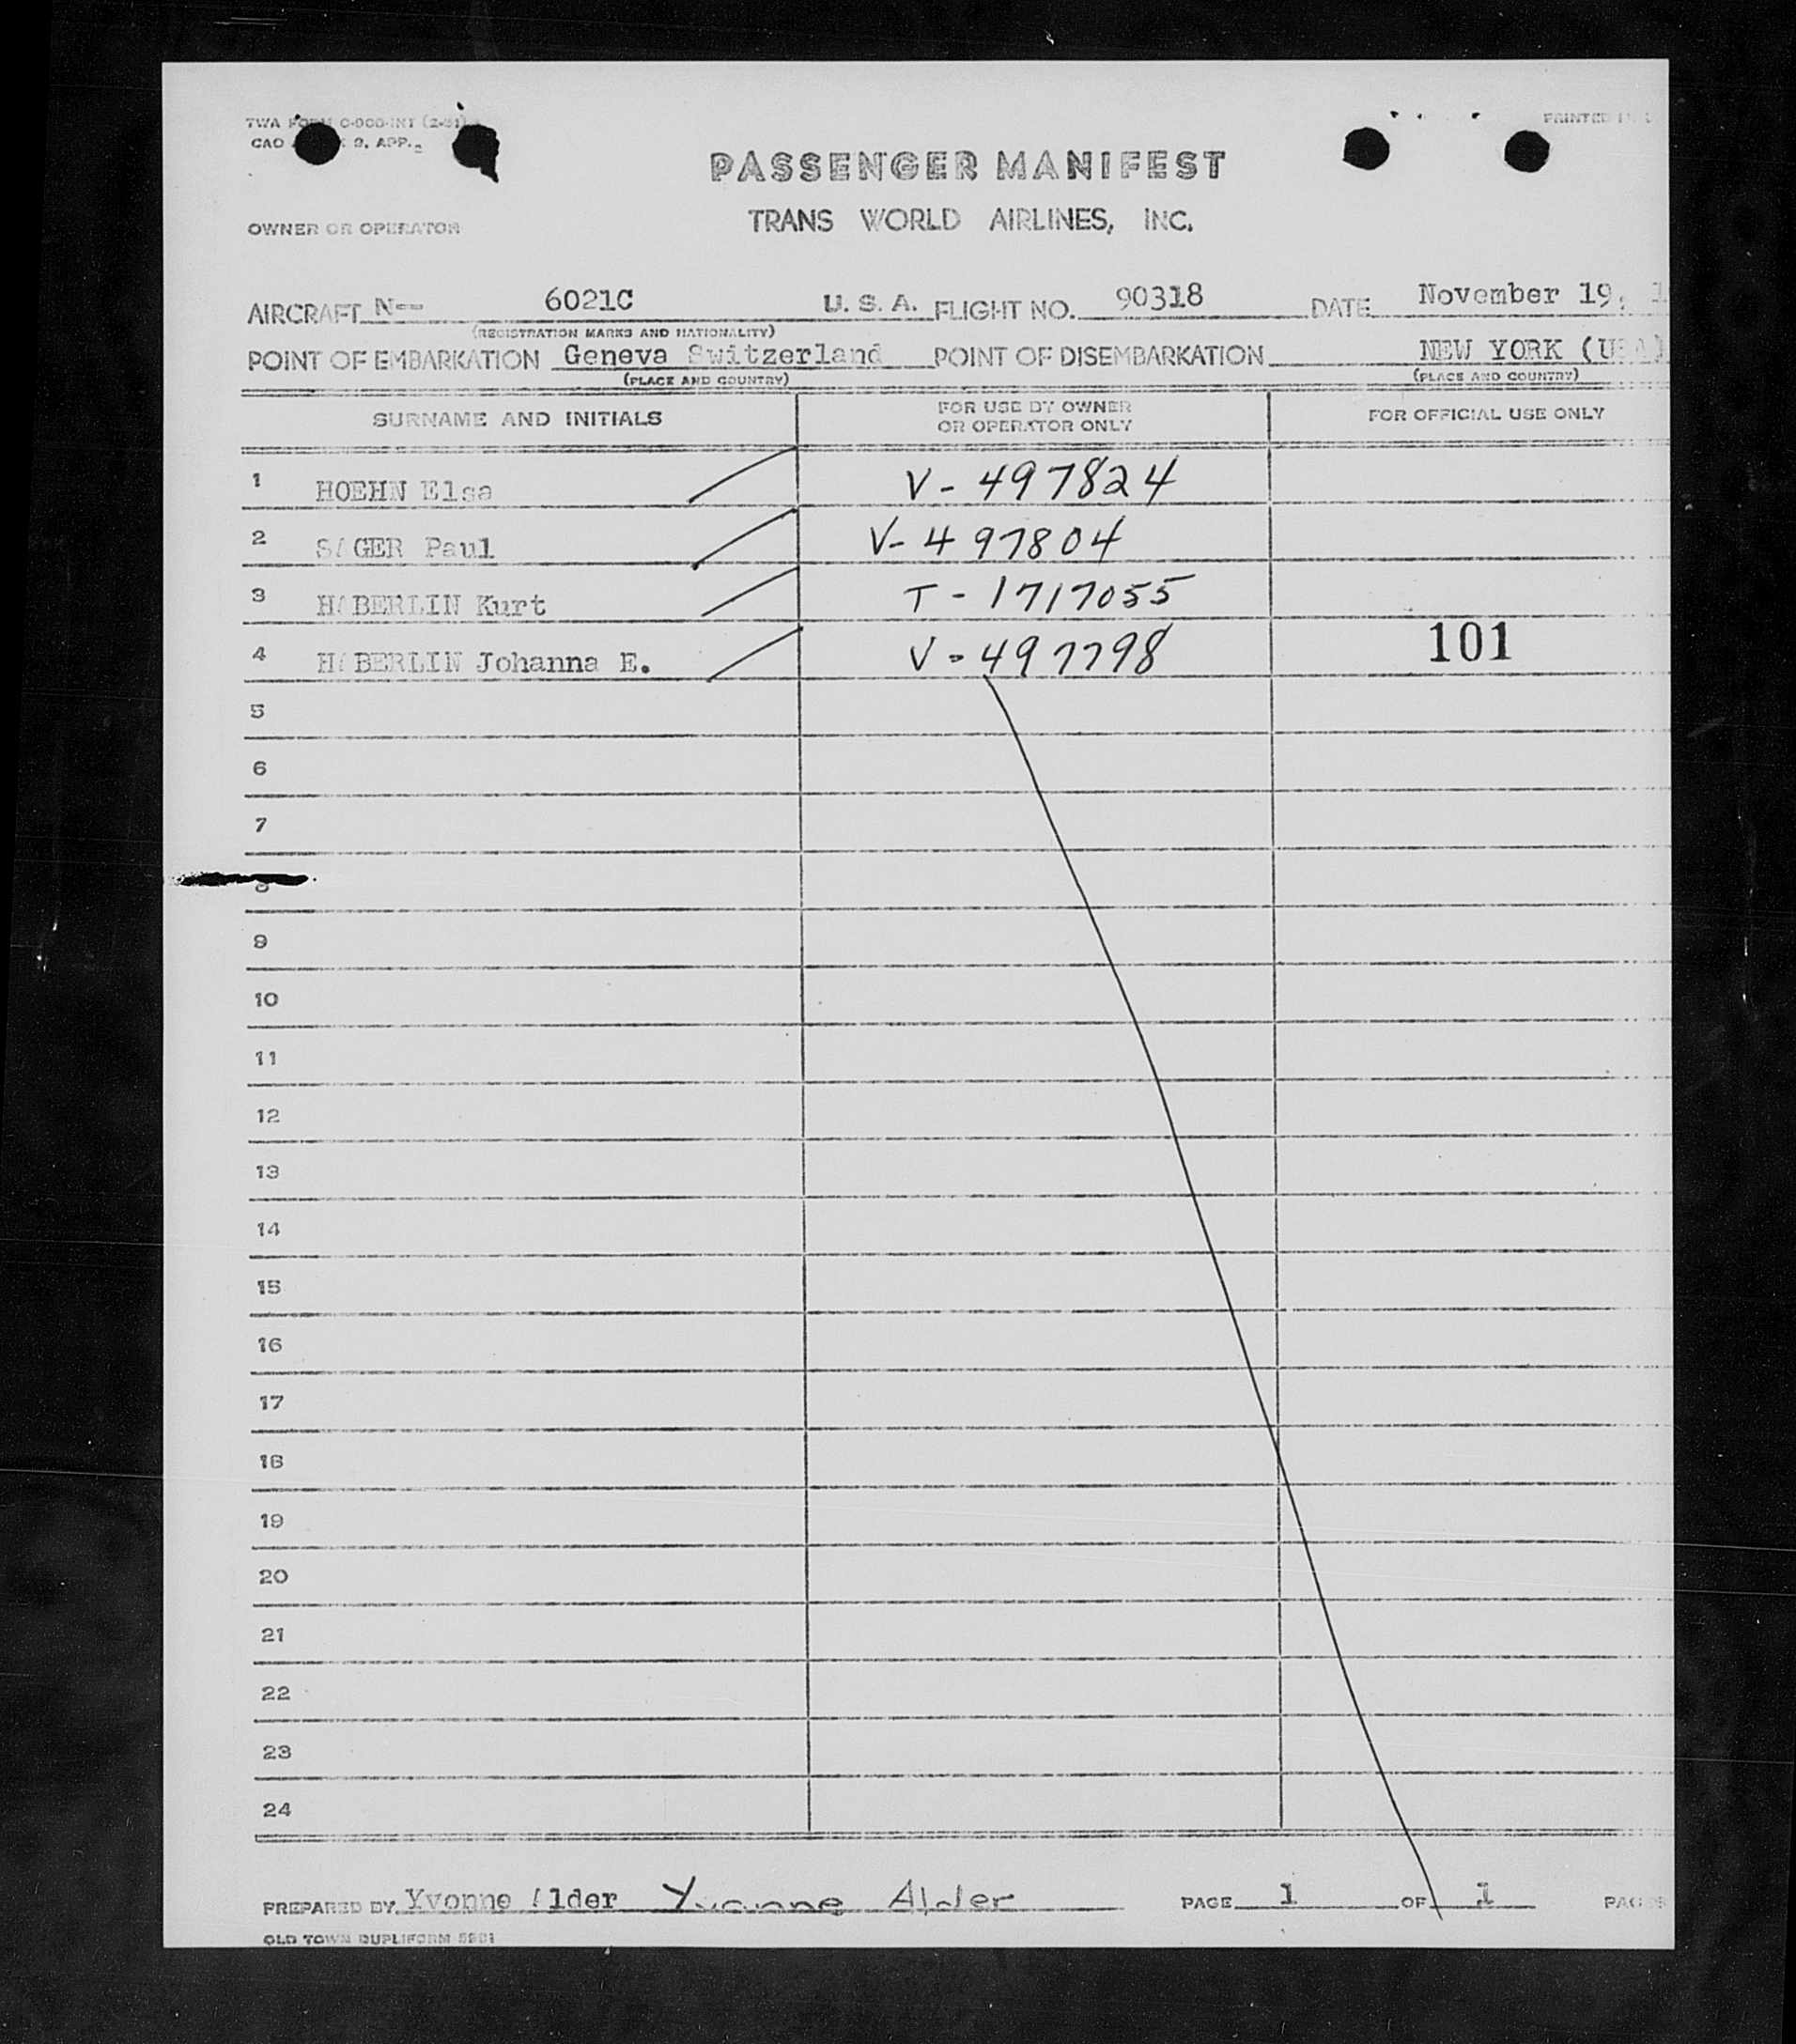 TWA FORM
CAO 9, APP.
PRINTED IN
PASSENGER MANIFEST
TRANS WORLD AIRLINES, INC.
OWNER OR OPERATOR
AIRCRAFT N-- 6021C U. S. A. FLIGHT NO. 90318 DATE November 19,
(REGISTRATION MARKS AND NATIONALITY)
POINT OF EMBARKATION Geneva Switzerland POINT OF DISEMBARKATION NEW YORK (USA)
(PLACE AND COUNTRY) (PLACE AND COUNTRY)
SURNAME AND INITIALS FOR USE BY OWNER OR OPERATOR ONLY FOR OFFICIAL USE ONLY
1 HOEHN Elsa V-497824
2 SAGER Paul V-497804
3 HABERLIN Kurt T-1717055
4 HABERLIN Johanna E. V-497798 101
5
6
7
8
9
10
11
12
13
14
15
16
17
18
19
20
21
22
23
24
PREPARED BY Yvonne Alder Yvonne Alder PAGE 1 OF 1 PAGES
OLD TOWN DUPLIFORM